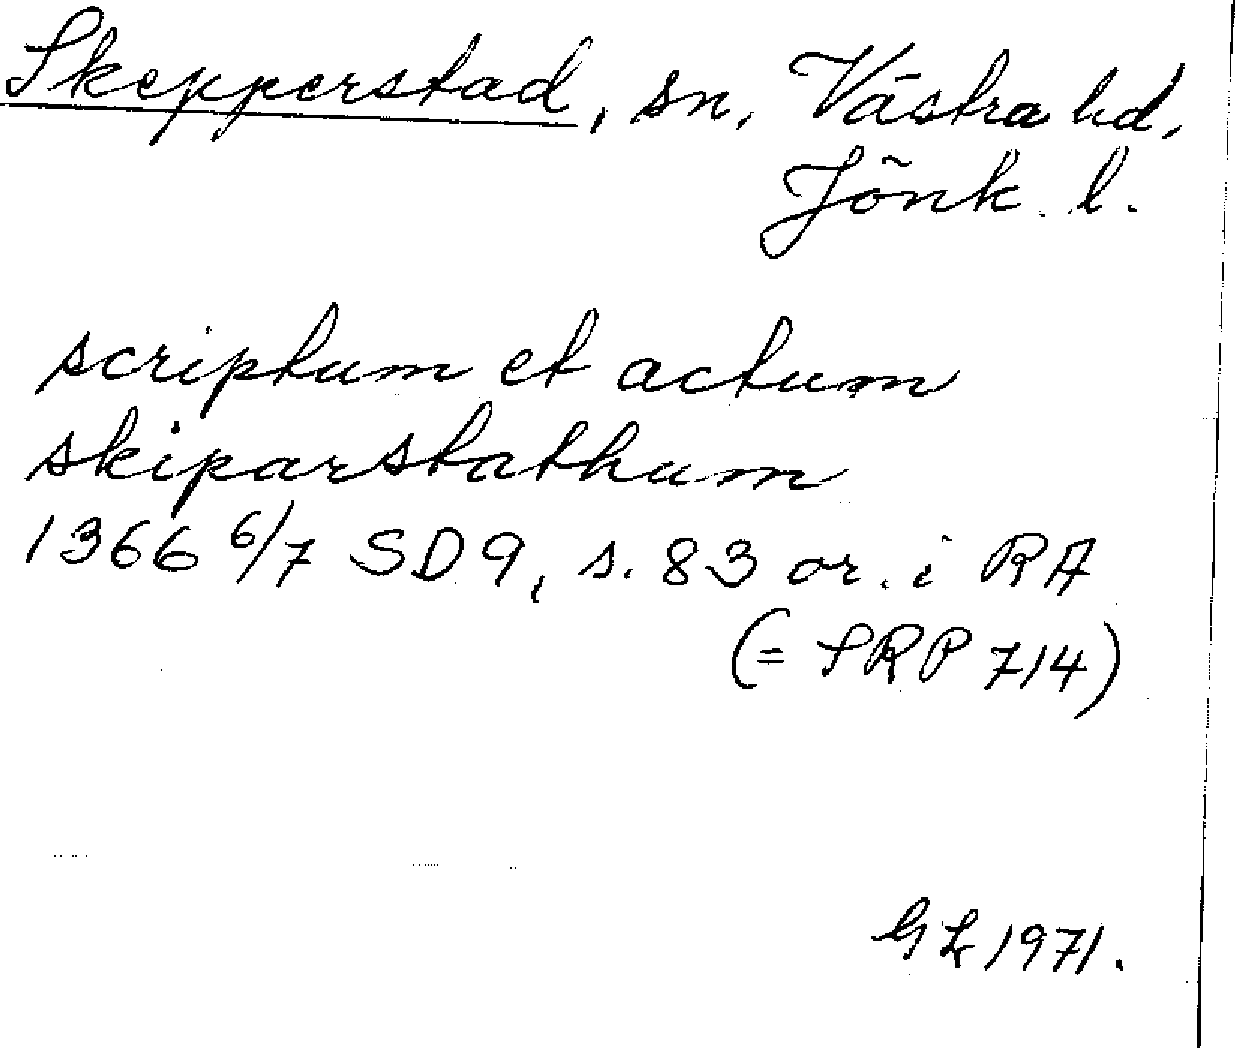 Skepperstad, sn, Västra hd,
Jönk. l.
scriptum et actum
skiparstathum
1366 6/7 SD 9, s. 83 or. i RA
(= SRP 714)
GL 1971.